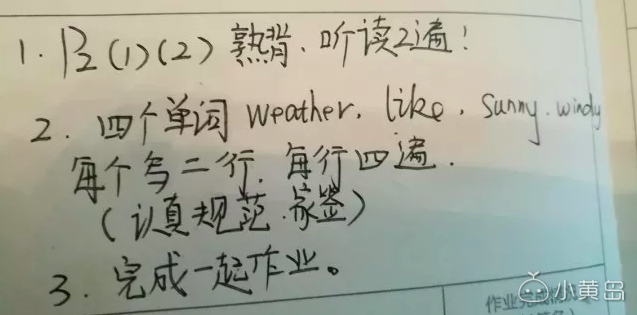 1. P2 (1) (2) 熟背、听读2遍!
2. 四个单词 weather, like, sunny, windy
每个写二行, 每行四遍.
(认真规范.家签)
3. 完成一起作业。
作业完成
小黄岛